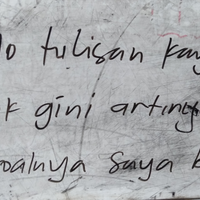 lo tulisan kay
k gini artiny
oalnya saya k